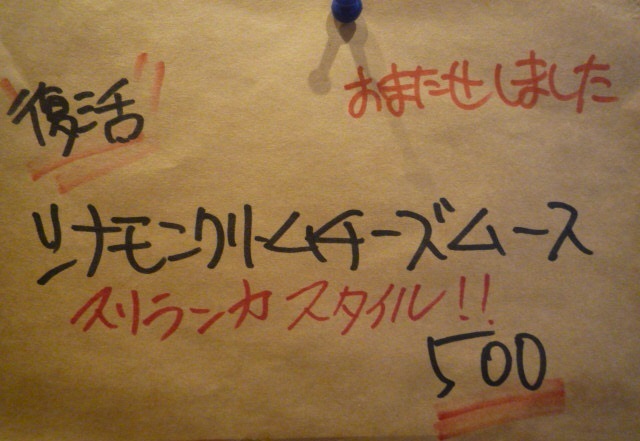 復活
おまたせしました
シナモンクリームチーズムース
スリランカスタイル!!
500